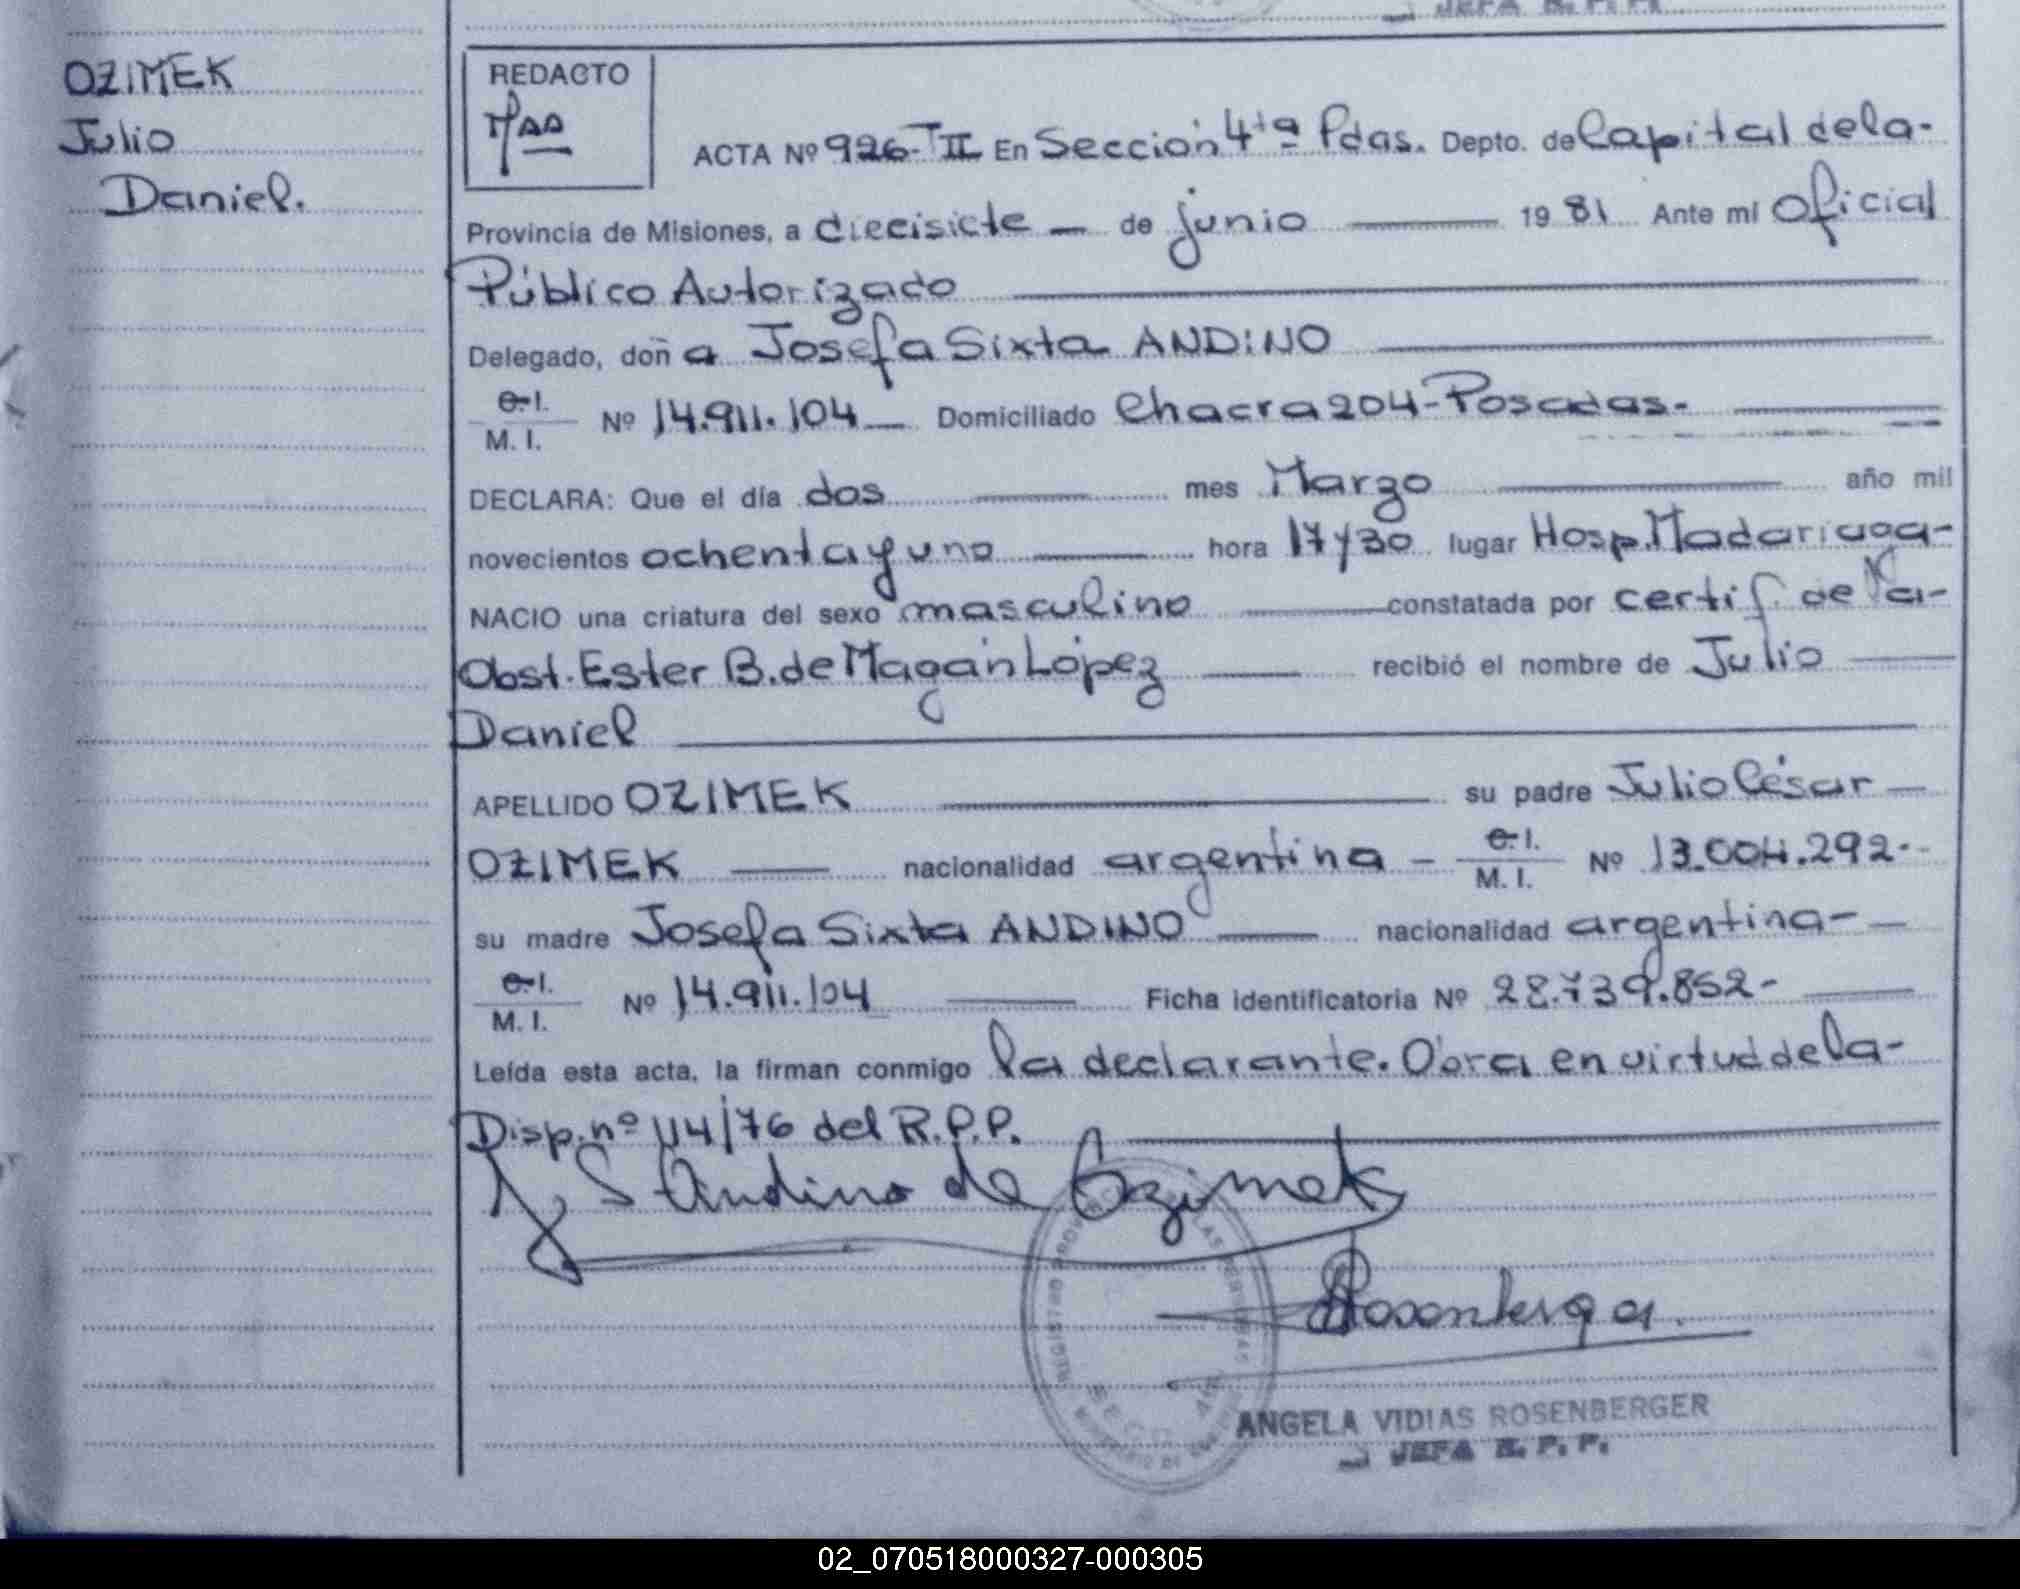 JEFA R. P. P.
OZIMEK
Julio
Daniel.
REDACTO
ACTA Nº 926-TII En Sección 4ta Pdas. Depto. de Capital de la-
Provincia de Misiones, a diecisiete — de junio — 19 81 Ante mi Oficial
Público Autorizado
Delegado, doñ a Josefa Sixta ANDINO
C.I.
M. I. Nº 14.911.104 — Domiciliado Chacra 204-Posadas.
DECLARA: Que el día dos — mes Marzo — año mil
novecientos ochenta y uno — hora 17 y 30 lugar Hosp. Madariaga-
NACIO una criatura del sexo masculino — constatada por certif. de la-
Obst. Ester B. de Magán López — recibió el nombre de Julio —
Daniel
APELLIDO OZIMEK — su padre Julio César —
OZIMEK — nacionalidad argentina — C.I.
M. I. Nº 13.004.292.-
su madre Josefa Sixta ANDINO — nacionalidad argentina-
C.I.
M. I. Nº 14.911.104 — Ficha identificatoria Nº 28.739.852-
Leída esta acta, la firman conmigo la declarante. Obra en virtud de la-
Disp. nº 114/76 del R.P.P.
J. S Andino de Ozimek
ANGELA VIDIAS ROSENBERGER
JEFA R. P. P.
02_070518000327-000305